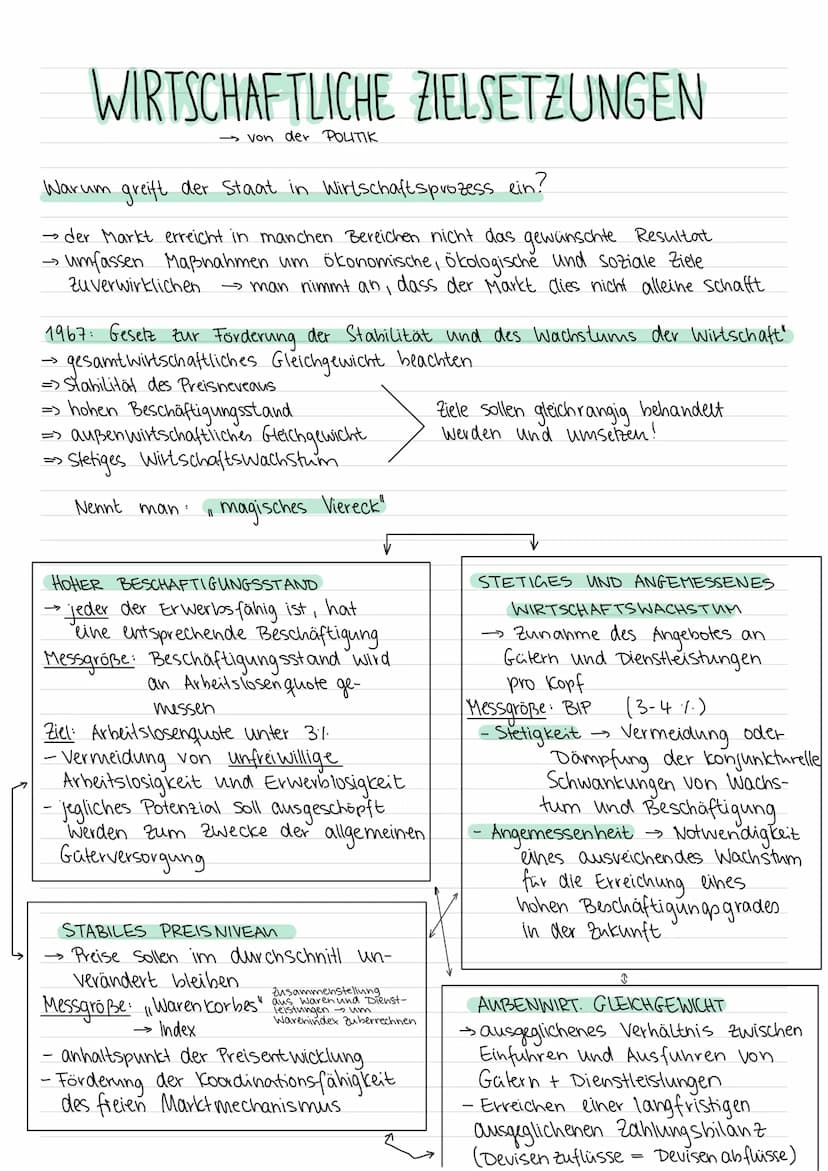 WIRTSCHAFTLICHE ZIELSETZUNGEN
→ von der POLITIK
Warum greift der Staat in Wirtschaftsprozess ein?
→ der Markt erreicht in manchen Bereichen nicht das gewünschte Resultat
→ umfassen Maßnahmen um ökonomische, ökologische und soziale Ziele
zuverwirklichen → man nimmt an, dass der Markt dies nicht alleine schafft
1967: Gesetz zur Förderung der Stabilität und des Wachstums der Wirtschaft"
→ gesamtwirtschaftliches Gleichgewicht beachten
=> Stabilität des Preisneveaus
=> hohen Beschäftigungsstand
=> außenwirtschaftliches Gleichgewicht
=> stetiges Wirtschaftswachstum
Ziele sollen gleichrangig behandelt
werden und umsetzen!
Nennt man: „magisches Viereck"
HOHER BESCHÄFTIGUNGSSTAND
→ jeder der Erwerbsfähig ist, hat
eine entsprechende Beschäftigung
Messgröße: Beschäftigungsstand wird
an Arbeitslosenquote ge-
messen
Ziel: Arbeitslosenquote unter 3%
- Vermeidung von unfreiwillige
Arbeitslosigkeit und Erwerblosigkeit
- jegliches Potenzial soll ausgeschöpft
werden zum Zwecke der allgemeinen
Güterversorgung
STETIGES UND ANGEMESSENES
WIRTSCHAFTSWACHSTUM
→ Zunahme des Angebotes an
Gütern und Dienstleistungen
pro Kopf
Messgröße: BIP (3-4 %)
- Stetigkeit → Vermeidung oder
Dämpfung der konjunkturelle
Schwankungen von Wachs-
tum und Beschäftigung
- Angemessenheit → Notwendigkeit
eines ausreichendes Wachstum
für die Erreichung eines
hohen Beschäftigungsgrades
in der Zukunft
STABILES PREISNIVEAU
→ Preise sollen im durchschnitt un-
verändert bleiben
Messgröße: „Warenkorbes"
→ Index
Zusammenstellung
aus Waren und Dienst-
leistungen → um
Warenindex zuberrechnen
- anhaltspunkt der Preisentwicklung
- Förderung der Koordinationsfähigkeit
des freien Marktmechanismus
AUßENWIRT. GLEICHGEWICHT
→ ausgeglichenes Verhältnis zwischen
Einfuhren und Ausfuhren von
Gütern + Dienstleistungen
- Erreichen einer langfristigen
ausgeglichenen Zahlungsbilanz
(Devisenzuflüsse = Devisenabflüsse)